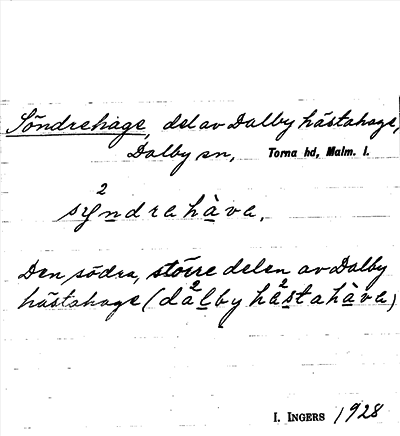 Söndrehage, del av Dalby hästahage,
Dalby sn, Torna hd, Malm. l.
2
syndrahàva.
Den södra, större delen av Dalby
hästahage (dal²by ha²stahàva)
I. INGERS 1928